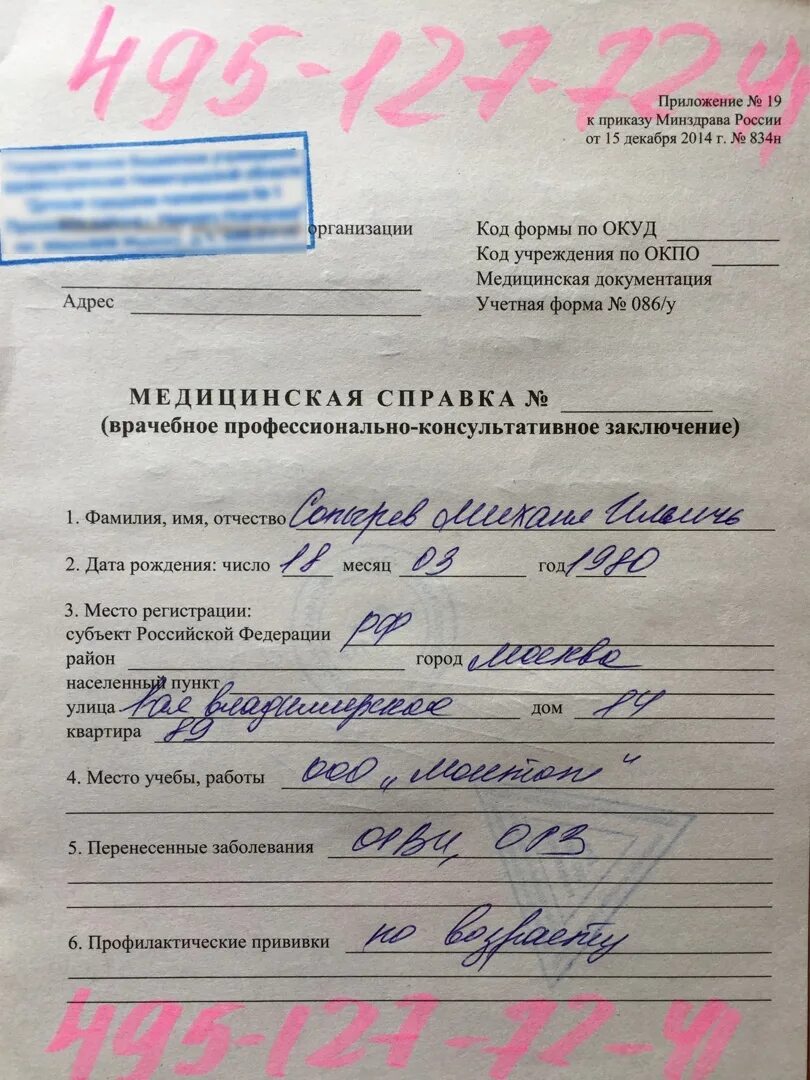 495-127-72-41
Приложение № 19
к приказу Минздрава России
от 15 декабря 2014 г. № 834н
организации
Код формы по ОКУД
Код учреждения по ОКПО
Медицинская документация
Адрес
Учетная форма № 086/у
МЕДИЦИНСКАЯ СПРАВКА №
(врачебное профессионально-консультативное заключение)
1. Фамилия, имя, отчество Сопырев Михаил Ильичь
2. Дата рождения: число 18 месяц 03 год 1980
3. Место регистрации:
субъект Российской Федерации РФ
район город Москва
населенный пункт
улица 1ая владимирская дом 14
квартира 89
4. Место учебы, работы ООО „
5. Перенесенные заболевания ОРВИ, ОРЗ
6. Профилактические прививки по возрасту
495-127-72-41